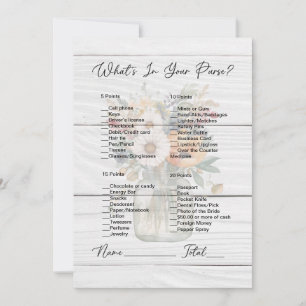 What's In Your Purse?
5 Points
Cell phone
Keys
Driver's license
Checkbook
Debit/Credit card
Hair tie
Pen/Pencil
Tissues
Glasses/Sunglasses
10 Points
Mints or Gum
Band-Aids/Bandages
Lighter/Matches
Safety Pins
Water Bottle
Business Card
Lipstick/Lipgloss
Over the Counter
Medicine
15 Points
Chocolate or candy
Energy Bar
Snacks
Deodorant
Paper/Notebook
Lotion
Tweezers
Perfume
Jewelry
20 Points
Passport
Book
Pocket Knife
Dental Floss/Pick
Photo of the Bride
$50.00 or more of cash
Foreign Money
Pepper Spray
Name Total